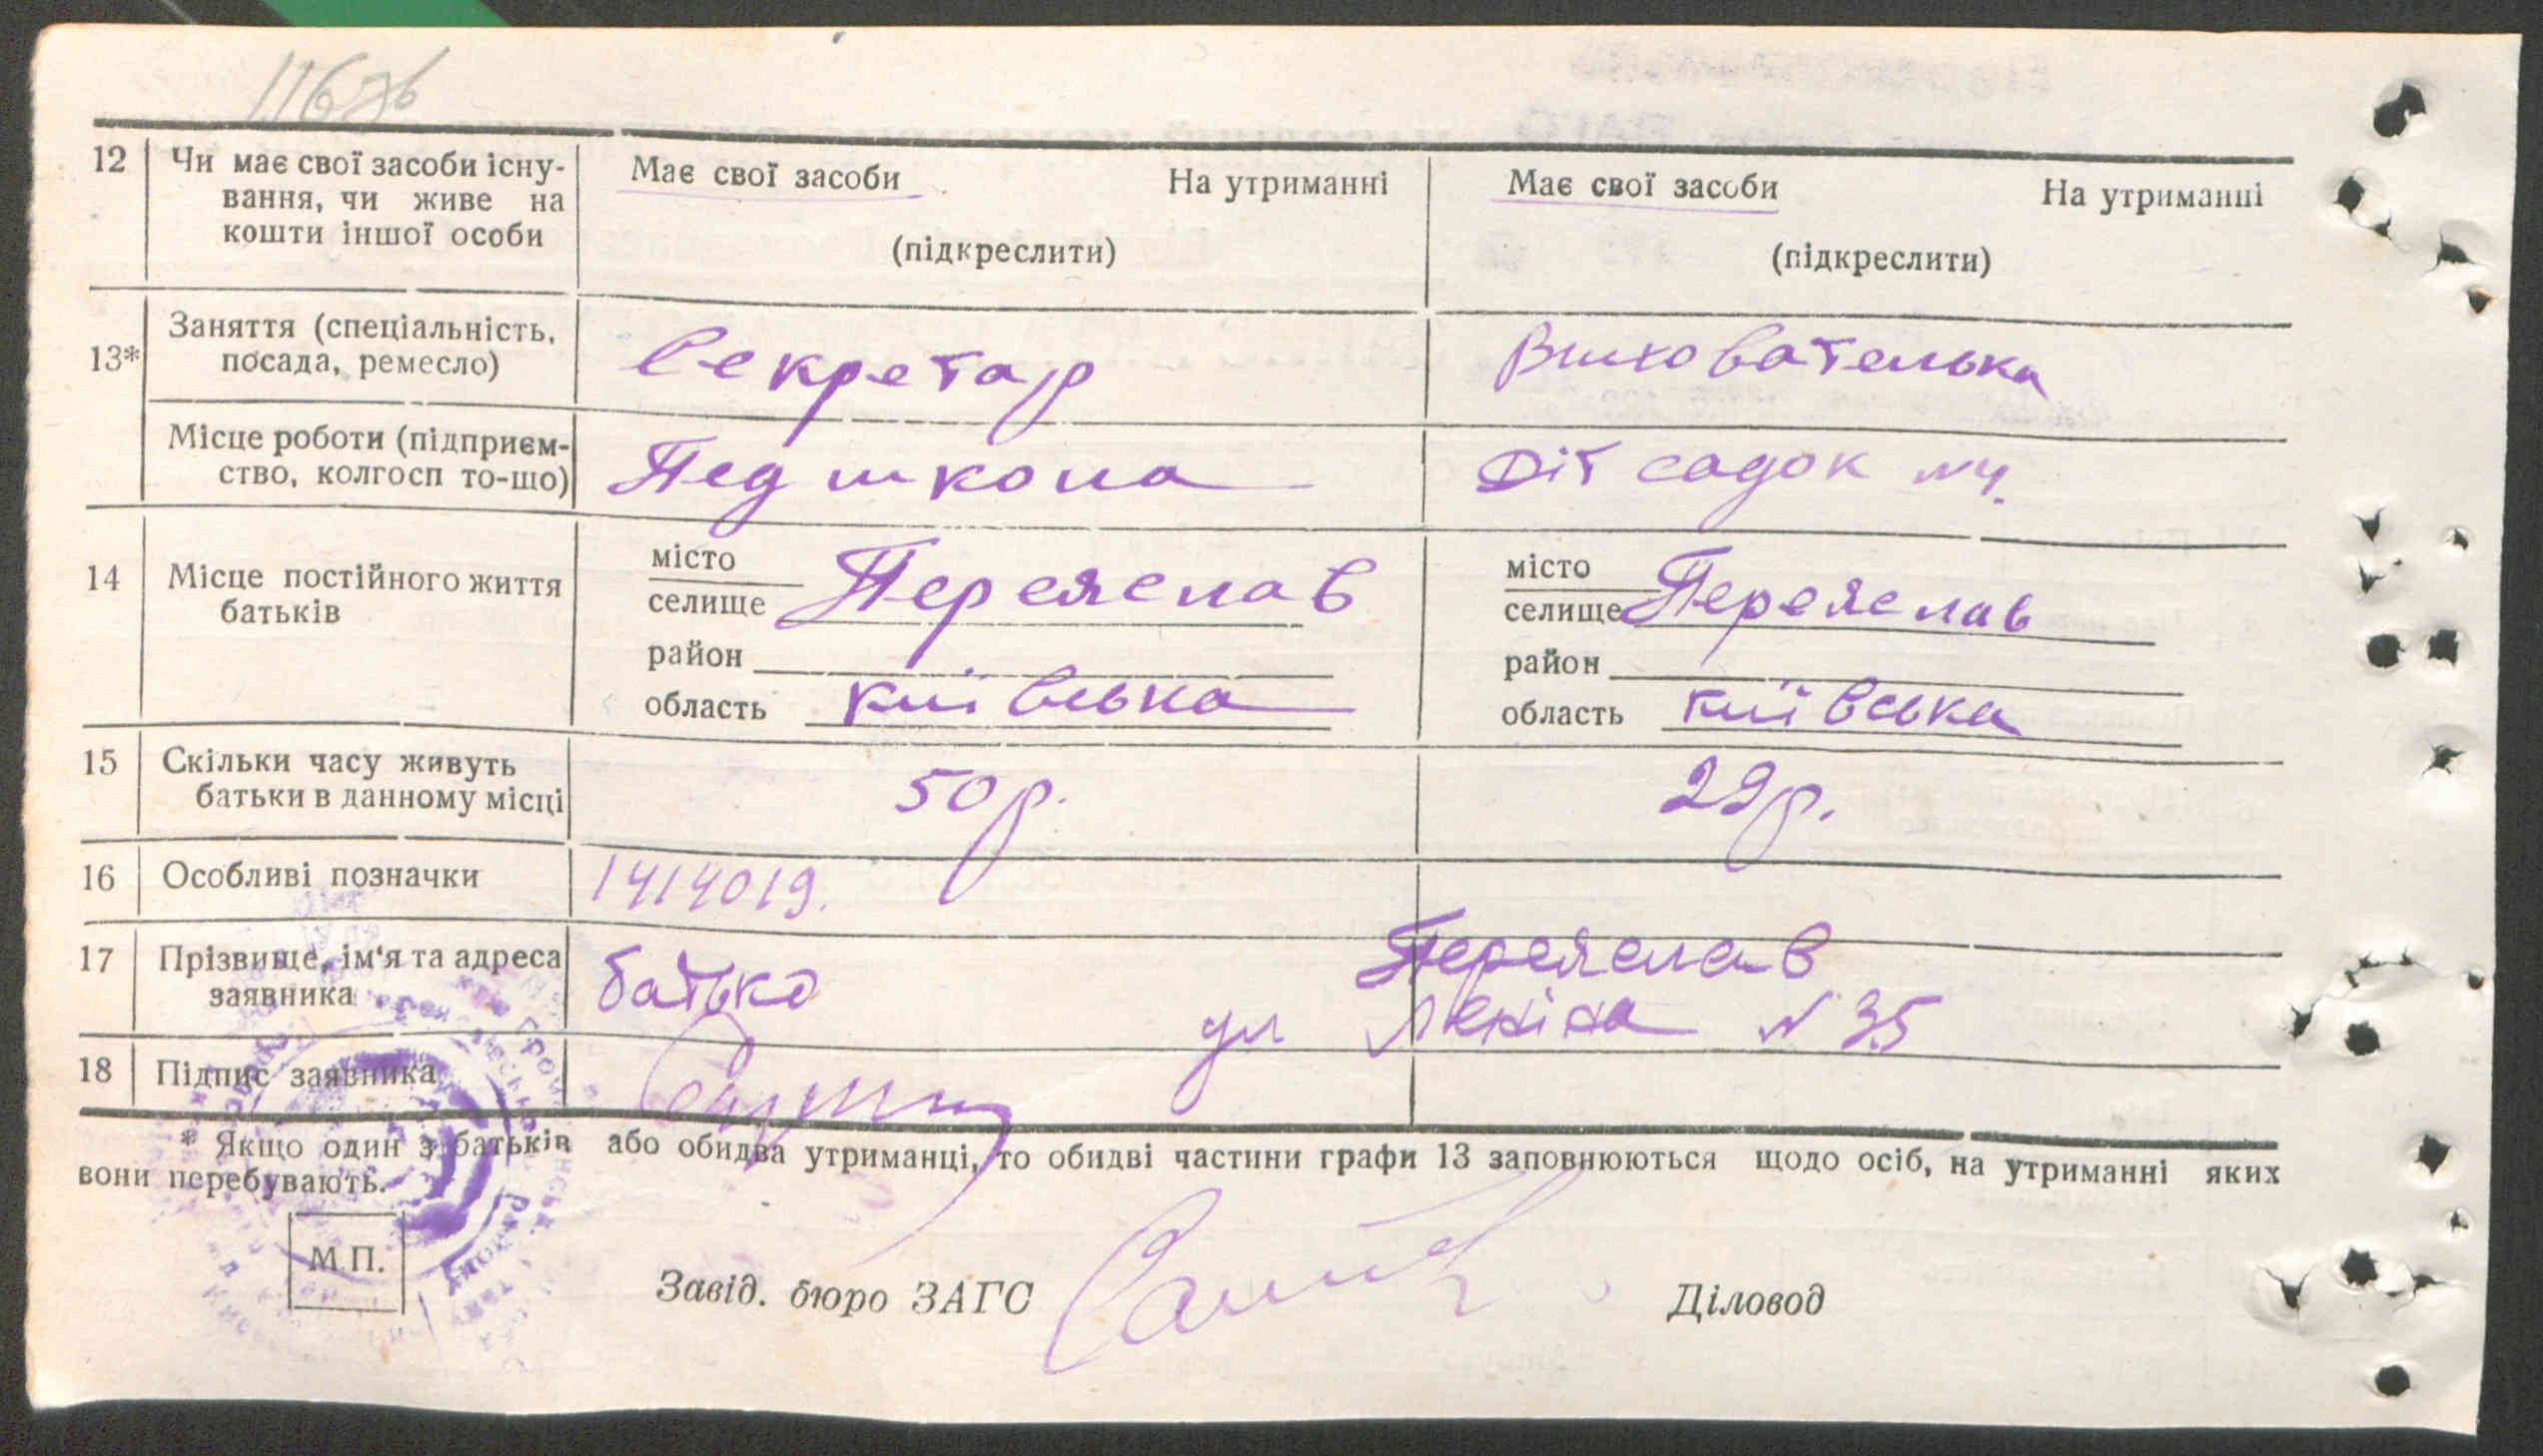 12 Чи має свої засоби існу- Має свої засоби На утриманні Має свої засоби На утриманні
вання, чи живе на
кошти іншої особи (підкреслити) (підкреслити)
13* Заняття (спеціальність, Секретар Вихователька
посада, ремесло)
Місце роботи (підприєм- Пед школа Діт садок №4.
ство, колгосп то-що)
14 Місце постійного життя місто Переяслав місто Переяслав
батьків селище селище
район район
область київська область київська
15 Скільки часу живуть 50 р. 29 р.
батьки в данному місці
16 Особливі позначки 1414019.
17 Прізвище, ім'я та адреса батько Переяслав
заявника ул Леніна N 35
18 Підпис заявника
* Якщо один з батьків або обидва утриманці, то обидві частини графи 13 заповнюються щодо осіб, на утриманні яких
вони перебувають.
М.П.
Завід. бюро ЗАГС Діловод